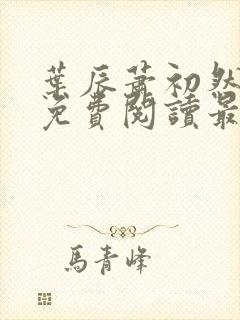 葉辰蕭初然
免費閱讀最
馬青峰